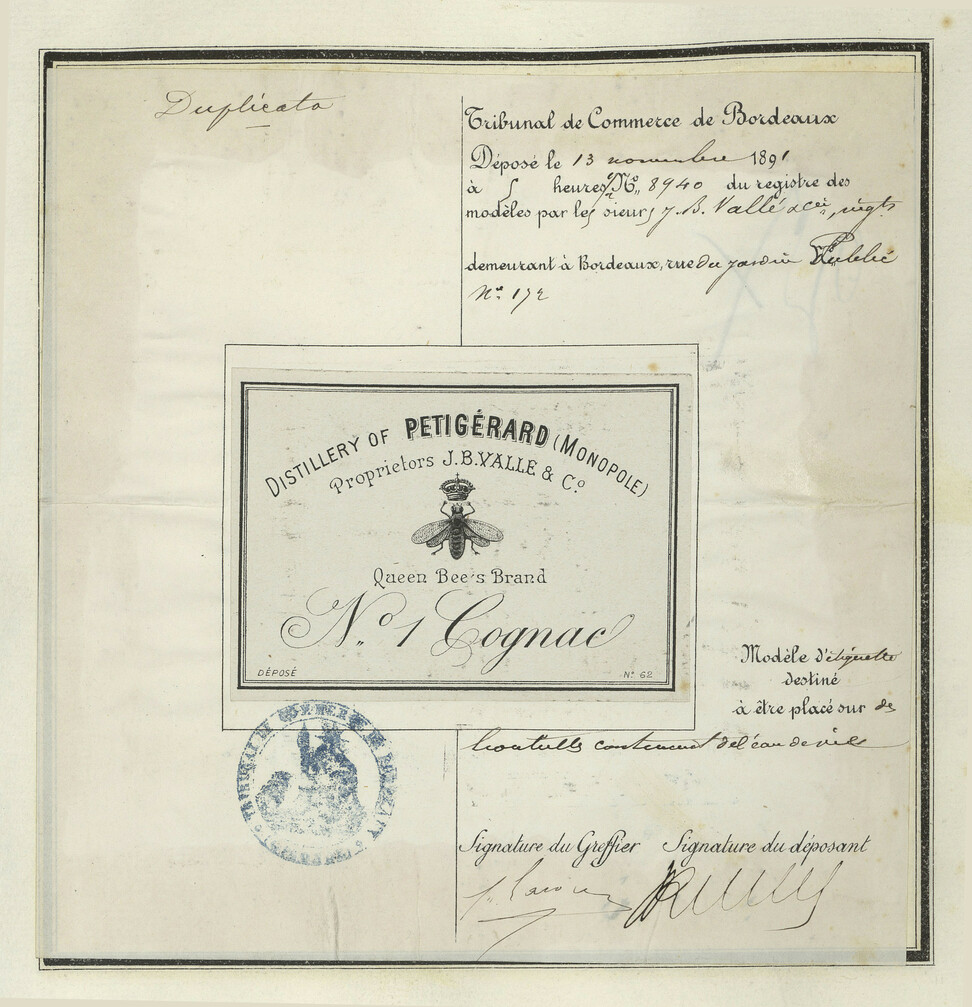 Duplicata
Tribunal de Commerce de Bordeaux
Déposé le 13 novembre 1891
à 5 heures Nº 8940 du registre des
modèles par les sieurs J. B. Vallé & Cie, négts
demeurant à Bordeaux, rue du Jardin Public
Nº 172
DISTILLERY OF PETIGÉRARD (MONOPOLE)
Proprietors J.B. VALLE & Cº
Queen Bee's Brand
Nº 1 Cognac
DÉPOSÉ
Nº 62
Modèle d'étiquette
destiné
à être placé sur des
bouteilles contenant de l'eau de vie
TRIBUNAL DE COMMERCE DE BORDEAUX
Signature du Greffier Signature du déposant